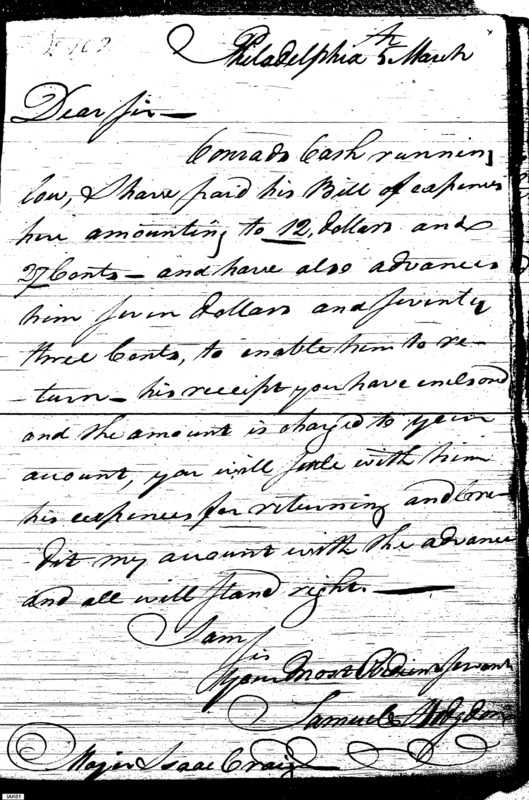 Philadelphia 5 March
Dear Sir —
Conrads Cash running
low, I have paid his Bill of expences
here amounting to 12, dollars and
27 Cents — and have also advanced
him seven dollars and seventy
three Cents, to enable him to re-
turn — his receipt you have inclosed
and the amount is charged to your
account, you will settle with him
his expences for returning and Cre-
dit my account with the advance
and all will stand right. —
I am
Sir
Your most Obedient Servant
Samuel Hodgdon
Major Isaac Craig
IAK01